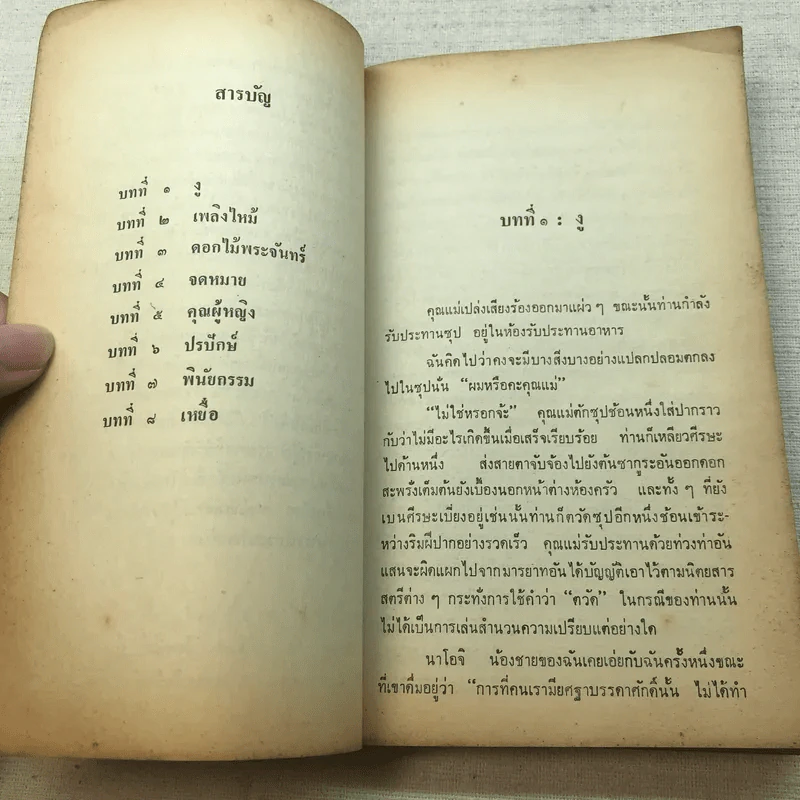 สารบัญ
บทที่ ๑ งู
บทที่ ๒ เพลิงไหม้
บทที่ ๓ ดอกไม้พระจันทร์
บทที่ ๔ จดหมาย
บทที่ ๕ คุณผู้หญิง
บทที่ ๖ ปรปักษ์
บทที่ ๗ พินัยกรรม
บทที่ ๘ เหยื่อ
บทที่ ๑ : งู
คุณแม่เปล่งเสียงร้องออกมาแผ่ว ๆ ขณะนั้นท่านกำลัง
รับประทานซุป อยู่ในห้องรับประทานอาหาร
ฉันคิดไปว่าคงจะมีบางสิ่งบางอย่างแปลกปลอมตกลง
ไปในซุปนั่น “ผมหรือคะคุณแม่”
“ไม่ใช่หรอกจ้ะ” คุณแม่ตักซุปช้อนหนึ่งใส่ปากราว
กับว่าไม่มีอะไรเกิดขึ้นเมื่อเสร็จเรียบร้อย ท่านก็เหลียวศีรษะ
ไปด้านหนึ่ง ส่งสายตาจับจ้องไปยังต้นซากุระอันออกดอก
สะพรั่งเต็มต้นยังเบื้องนอกหน้าต่างห้องครัว และทั้ง ๆ ที่ยัง
เบนศีรษะเบี่ยงอยู่เช่นนั้นท่านก็ตวัดซุปอีกหนึ่งช้อนเข้าระ-
หว่างริมฝีปากอย่างรวดเร็ว คุณแม่รับประทานด้วยท่วงท่าอัน
แสนจะผิดแผกไปจากมารยาทอันได้บัญญัติเอาไว้ตามนิตยสาร
สตรีต่าง ๆ กระทั่งการใช้คำว่า “ตวัด” ในกรณีของท่านนั้น
ไม่ได้เป็นการเล่นสำนวนความเปรียบแต่อย่างใด
นาโอจิ น้องชายของฉันเคยเอ่ยกับฉันครั้งหนึ่งขณะ
ที่เขาดื่มอยู่ว่า “การที่คนเรามียศฐาบรรดาศักดิ์นั้น ไม่ได้ทำ